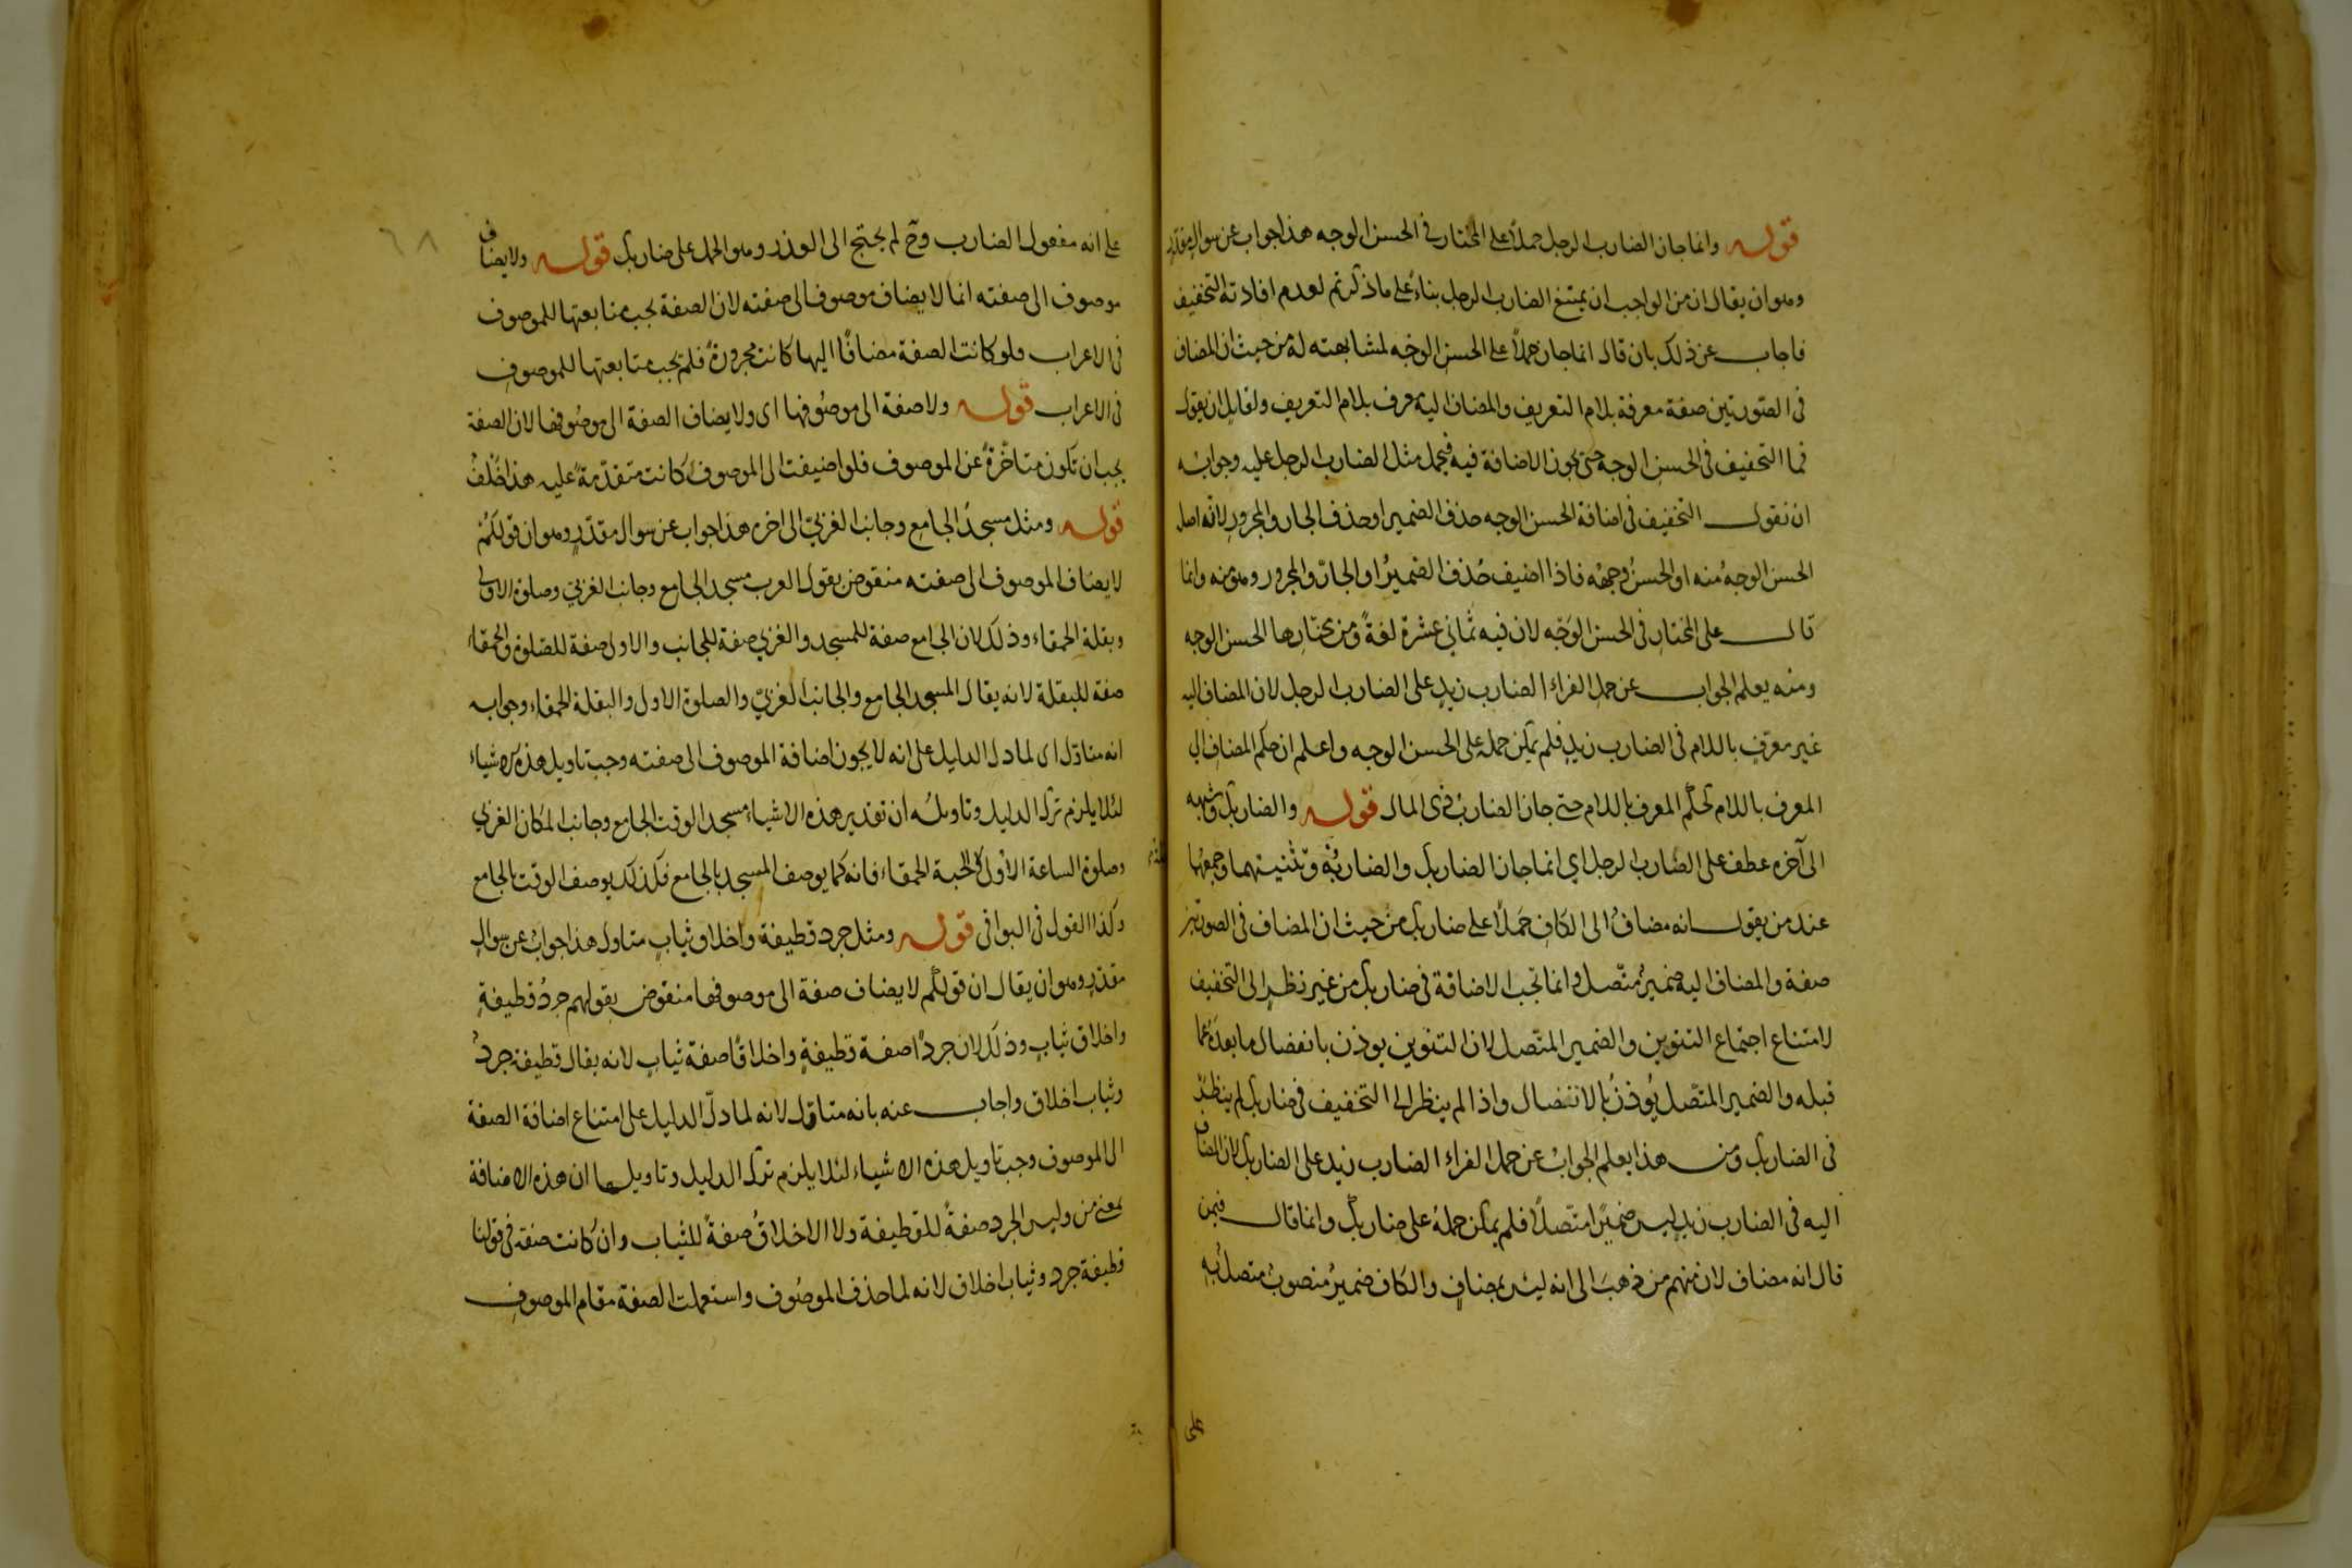 قوله وانما جاز الضارب الرجل حملاً على المختار فى الحسن الوجه هذا جواب عن سوال مقدّر
وهو ان يقال ان من الواجب ان يمتنع الضارب الرجل بناءً على ما ذكرتم لعدم افادته التخفيف
فاجاب عن ذلك بان قال انما جاز حملاً على الحسن الوجه لمشابهته له من حيث ان المضاف
فى الصّورتين صفة معرفة بلام التعريف والمضاف اليه معرف بلام التعريف ولقايل ان يقول
فما التخفيف فى الحسن الوجه حتى يجوز الاضافة فيه فيحمل مثل الضارب الرجل عليه وجوابه
ان نقول التخفيف فى اضافة الحسن الوجه حذف الضمير او حذف الجار والمجرور لانّه اصل
الحسن الوجهُ منه او الحسنُ وجهُه فاذا اضيف حُذف الضميرُ او الجارّ والمجرور وهو منه وانما
قال على المختار فى الحسن الوَجْه لان فيه ثمانى عشرة لغةً ومن مختارها الحسن الوجه
ومنه يعلم الجواب عن حمل الفراء الضارب زيدٍ على الضارب الرجل لان المضاف اليه
غير معرّفٍ باللام فى الضارب زيدٍ فلم يمكن حمله على الحسن الوجه واعلم ان حكم المضاف الى
المعرف باللام كحكم المعرف باللام حتى جاز الضاربُ ذى المال قوله والضاربك وشبهه
الى آخره عطف على الضّارب الرجل اى انما جاز الضاربك والضاربُه وتثنيتهما وجمعُها
عند من يقول انه مضافُ الى الكافِ حَملاً على ضاربك من حيث ان المضاف فى الصورتين
صفة والمضاف اليه ضميرُ متّصل وانما تجب الاضافة فى ضاربك من غير نظرٍ الى التخفيف
لامتناع اجتماع التنوين والضمير المتّصل لان التنوين يوذن بانفضال ما بعدَه عما
قبله والضمير المتّصل يُوذنُ بالانفضال واذا لم ينظر الى التخفيف فى ضاربك لم ينظر
فى الضاربك ومن هذا يعلم الجوابُ عن حمل الفراء الضارب زيد على الضاربك لان المضاف
اليه فى الضارب زيدٍ ليس ضميرًا متّصلاً فلم يمكن حملهُ على ضاربك وانما قال فيمن
قال انه مضاف لان منهم من ذهبَ الى انه ليس بمضافٍ والكاف ضميرُ منصوبُ متصل به
على
على انه مفعول الضارب وح لم يحتج الى العذر وهو الحمل على ضاربك قوله ولا يضاف
موصوف الى صفته انما لا يضاف موصوف الى صفته لان الصفة يجب متابعتها للموصوف
فى الاعراب فلو كانت الصفة مضافًا اليها كانت مجرورةً فلم يجب متابعتها للموصوف
فى الاعراب قوله ولا صفة الى موصوفها اى ولا يضاف الصفة الى موصوفها لان الصفة
يجب ان تكون متاخّرةً عن الموصوف فلو اضيفت الى الموصوف كانت متقدّمةً عليه هذا خُلفٌ
قوله ومثل مسجدُ الجامع وجانب الغربىّ الى اخره هذا جواب عن سوال مقدّرٍ وهو ان قولكُمْ
لا يضاف الموصوف الى صفته منقوض بقول العرب مسجد الجامع وجانب الغربىّ وصلوة الاولى
وبقلة الحمقاء وذلك لان الجامع صفة للمسجد والغربى صفة للجانب والاول صفة للصّلوة والحمقاء
صفة للبقلة لانه يقال المسجد الجامع والجانب الغربىّ والصلوة الاول والبقلة الحمقاء وجوابه
انه متاوّل اى لما دل الدليل على انه لا يجوز اضافة الموصوف الى صفته وجب تاويل هذه الاشياء
لئلا يلزم ترك الدليل وتاويله ان تقدير هذه الاشياء مسجد الوقت الجامع وجانب المكان الغربى
وصلوة الساعة الاولى والحبة الحمقاء فانه كما يوصف المسجد بالجامع فكذلك يوصف الوقت بالجامع
وكذا القول فى البواقى قوله ومثل جرد قطيفة واخلاق ثيابٍ متاول هذا جوابُ عن سوالٍ
مقدّرٍ وهو ان يقال ان قولكُم لا يضاف صفة الى موصوفها منقوض بقولهم جردُ قطيفةٍ
واخلاق ثيابٍ وذلك لان جردًا صفة قطيفةٍ واخلاقًا صفة ثيابٍ لانه يقال قطيفة جردٌ
وثياب اخلاق واجاب عنه بانه متاوّل لانه لما دلّ الدليل على امتناع اضافة الصفة
الى الموصوف وجب تاويل هذه الاشياء لئلا يلزم ترك الدليل وتاويلها ان هذه الاضافة
بمعنى من وليس الجرد صفةً للقطيفة ولا الاخلاقُ صفةً للثياب وان كانت صفة فى قولنا
قطيفة جرد وثياب اخلاق لانه لما حذف الموصُوف واستعملت الصفة مقام الموصوف